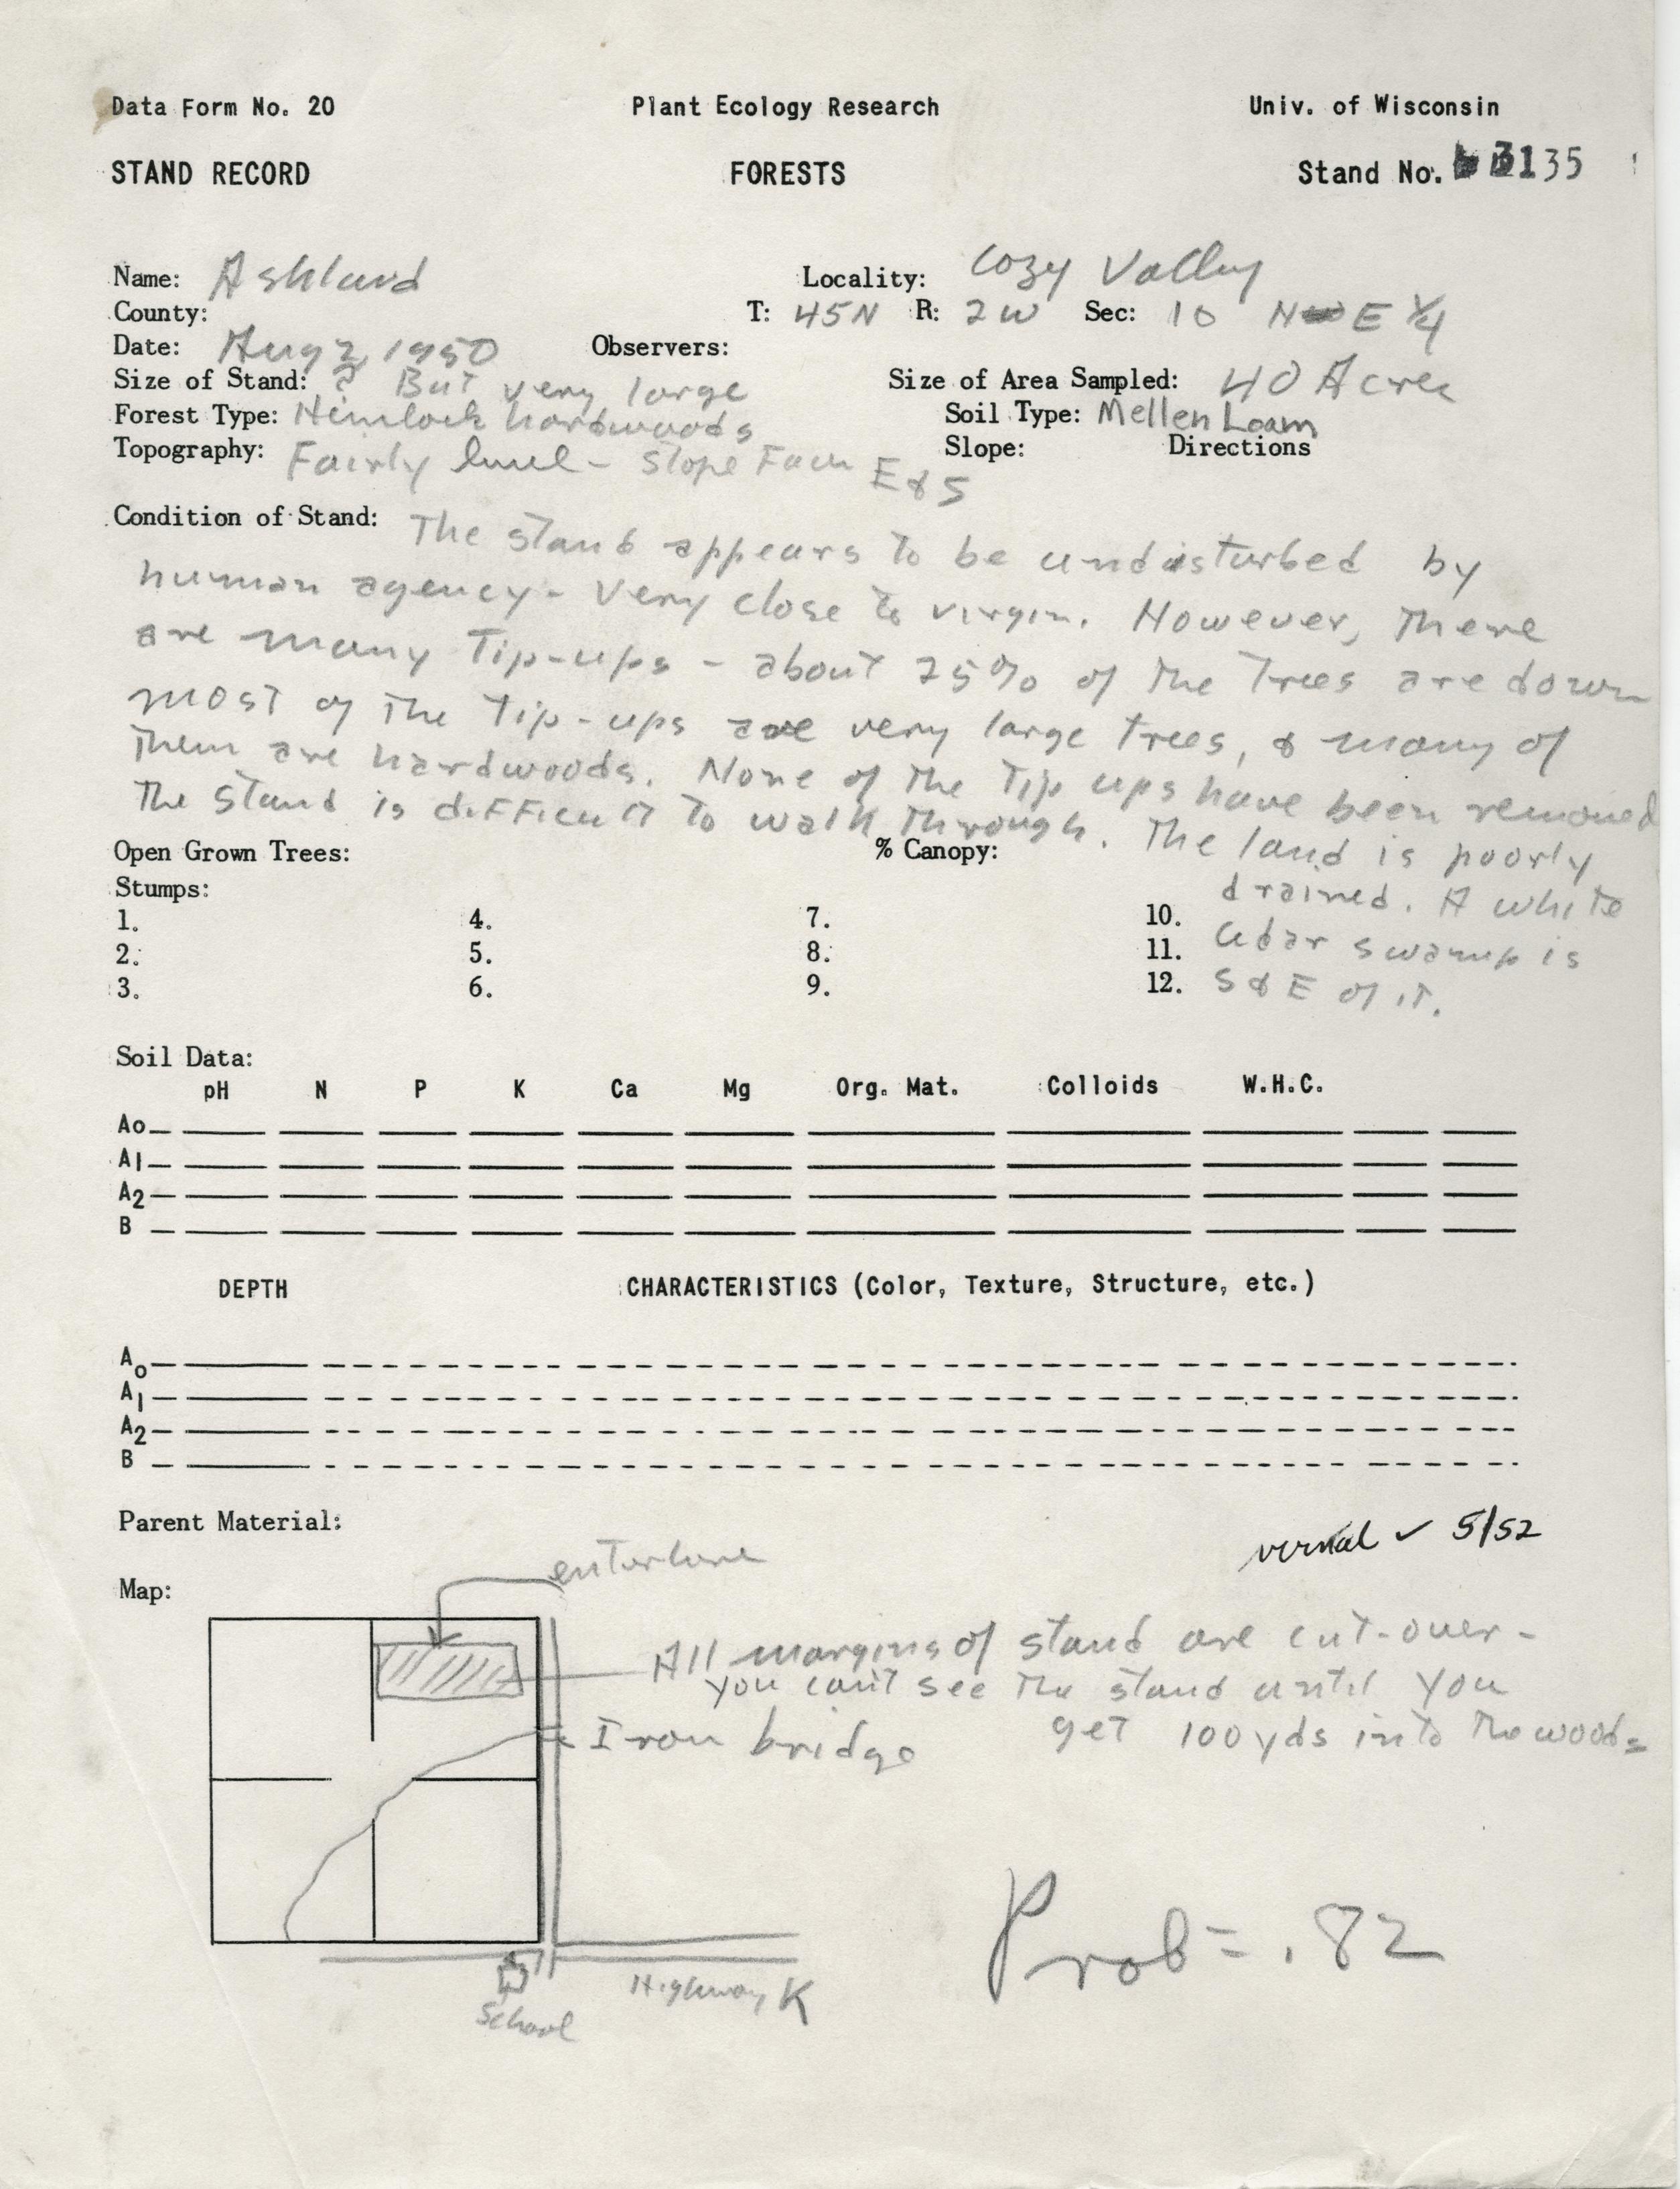 Data Form No. 20 Plant Ecology Research Univ. of Wisconsin
STAND RECORD FORESTS Stand No. 3135
Name: Ashland Locality: Cozy Valley
County: T: 45N R: 2W Sec: 10 N E 1/4
Date: Aug 2, 1950 Observers:
Size of Stand: ? But very large Size of Area Sampled: 40 Acres
Forest Type: Hemlock hardwoods Soil Type: Mellen Loam
Topography: Fairly level - slope Faces E & S Slope: Directions
Condition of Stand: The stand appears to be undisturbed by
human agency - very close to virgin. However, there
are many Tip-ups - about 25% of the trees are down
most of the tip-ups are very large trees, & many of
them are hardwoods. None of the Tip ups have been removed
The stand is difficult to walk through. The land is poorly
drained. A white
cedar swamp is
S & E of it.
Open Grown Trees: % Canopy:
Stumps:
1. 4. 7. 10.
2. 5. 8. 11.
3. 6. 9. 12.
Soil Data:
pH N P K Ca Mg Org. Mat. Colloids W.H.C.
Ao
A1
A2
B
DEPTH CHARACTERISTICS (Color, Texture, Structure, etc.)
Ao
A1
A2
B
Parent Material:
vernal ✓ 5/52
Map:
enter here
All margins of stand are cut-over -
you can't see the stand until you
get 100 yds into the woods
Iron bridge
Prob = .82
Highway K
School